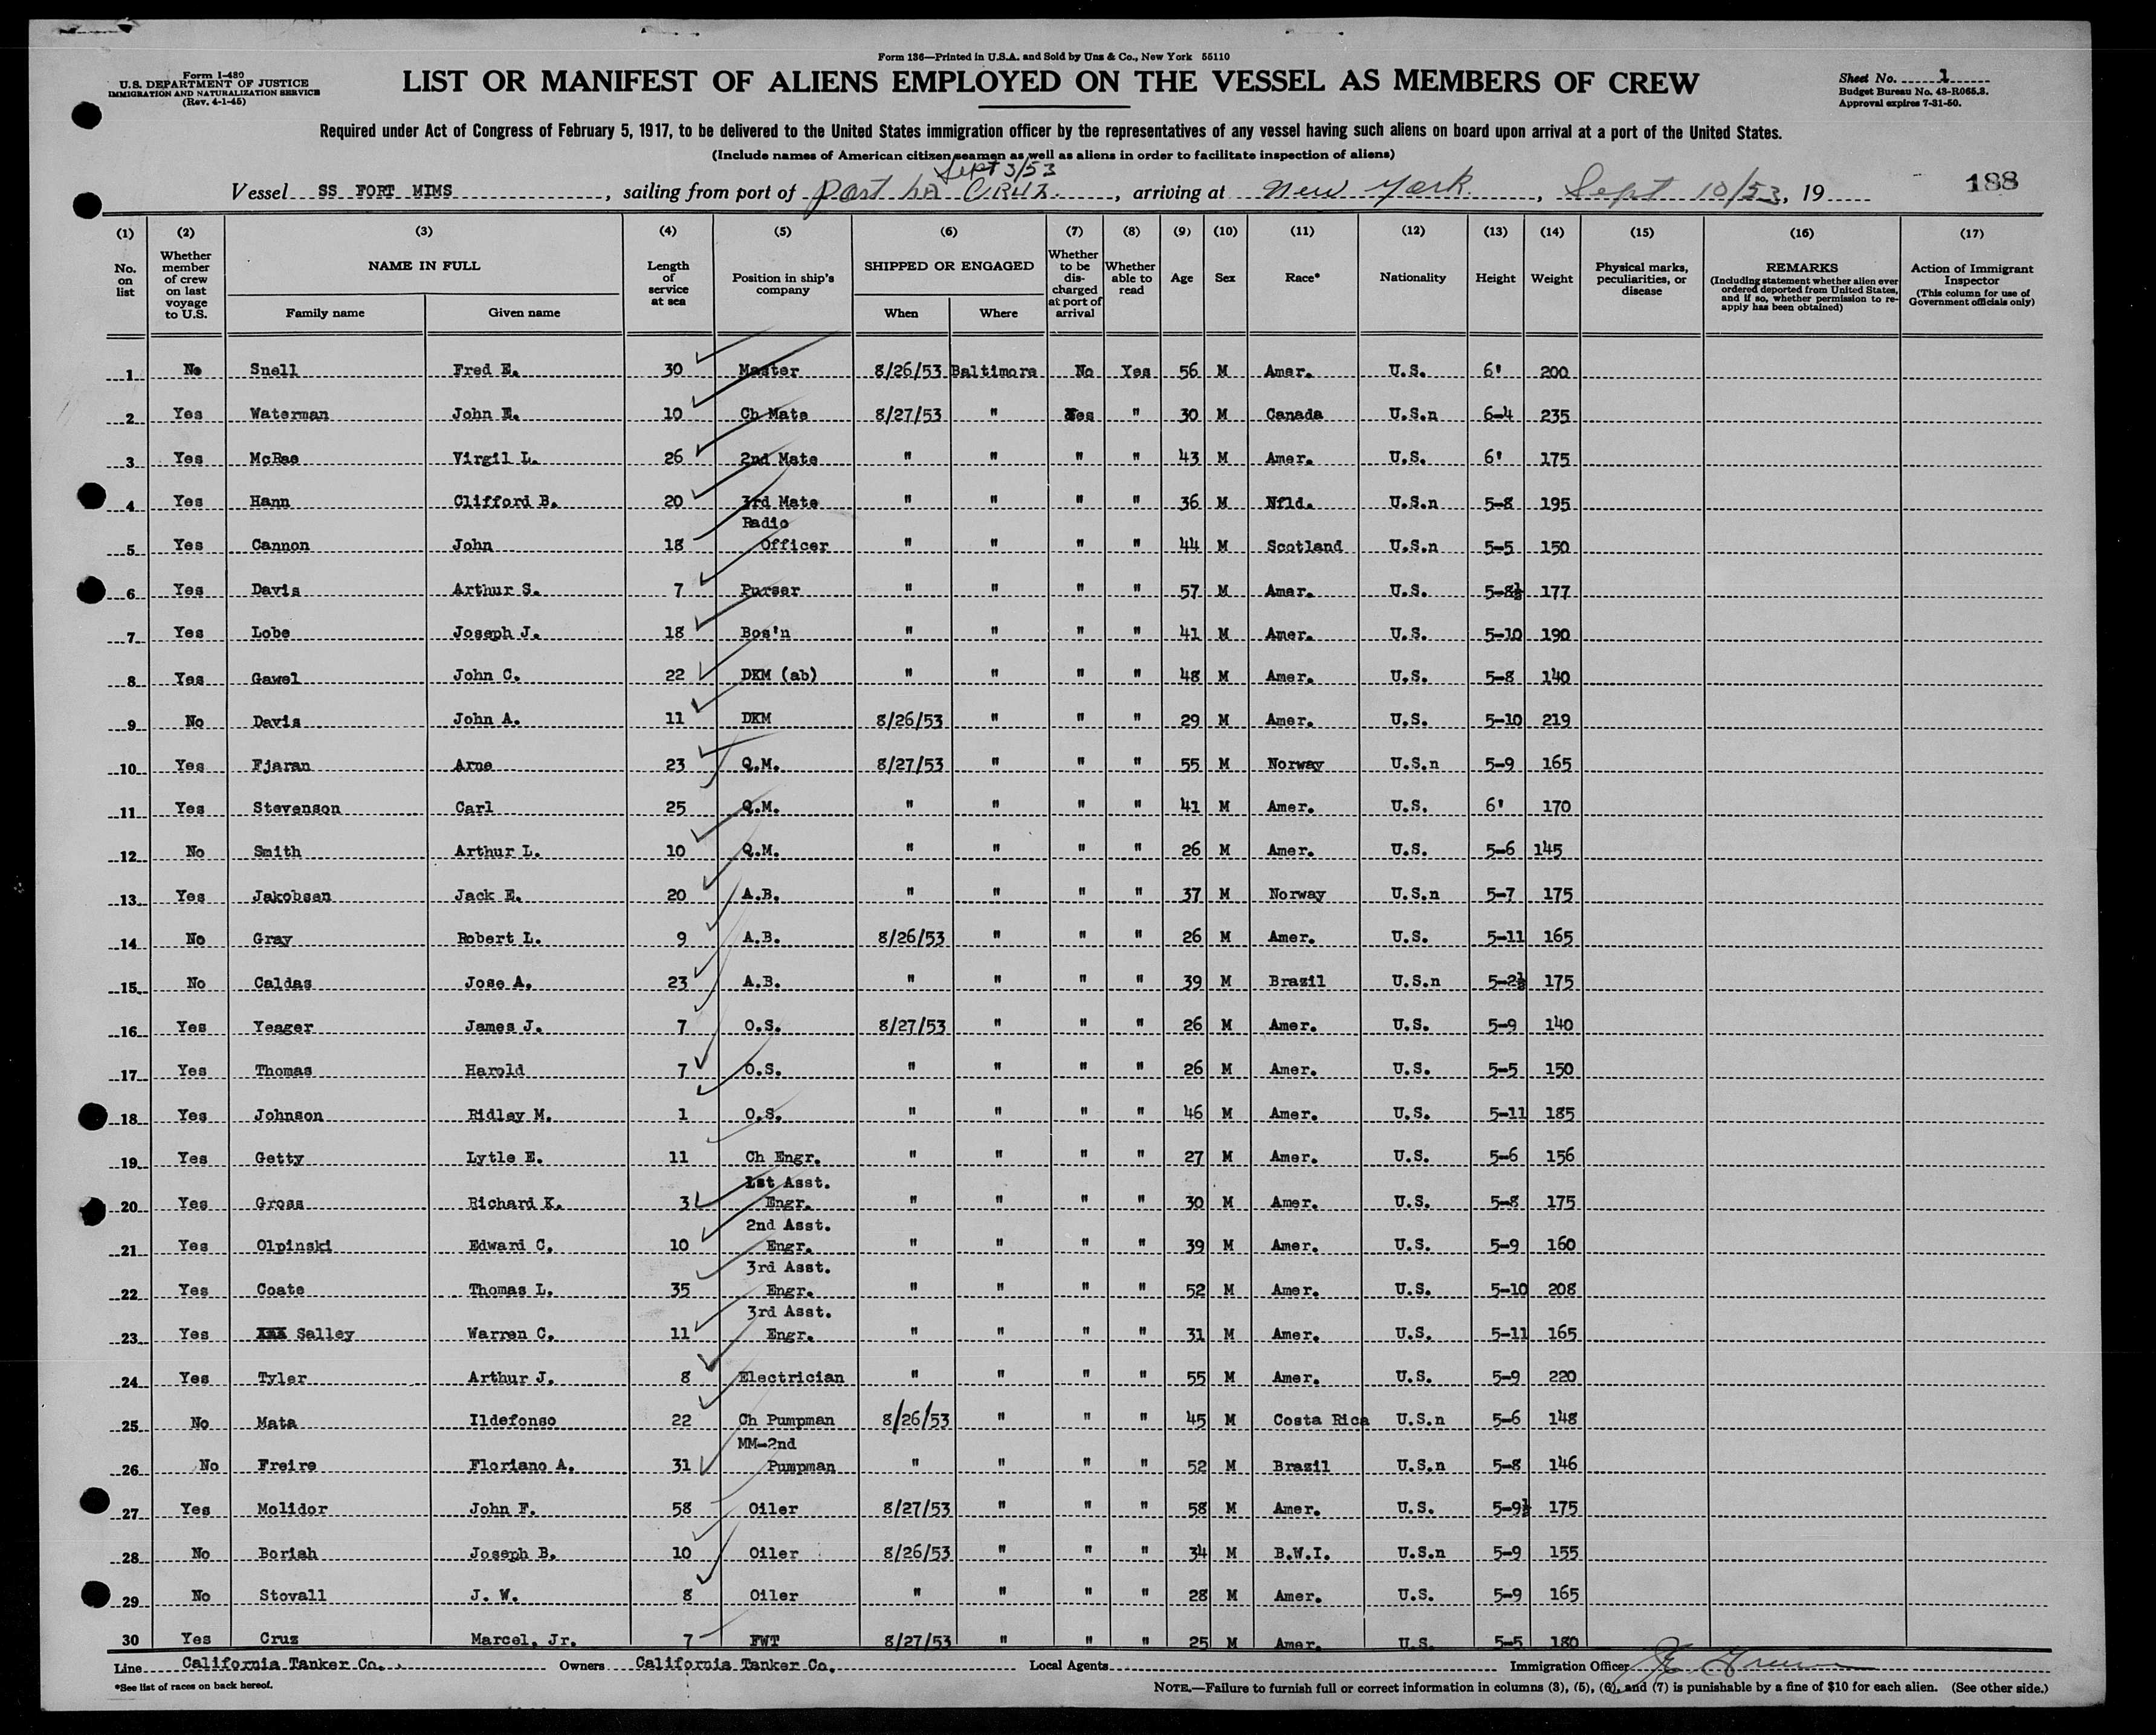 Form 136—Printed in U.S.A. and Sold by Unz & Co., New York 55110
Form I-480
U.S. DEPARTMENT OF JUSTICE
IMMIGRATION AND NATURALIZATION SERVICE
(Rev. 4-1-45)
LIST OR MANIFEST OF ALIENS EMPLOYED ON THE VESSEL AS MEMBERS OF CREW
Sheet No. 1
Budget Bureau No. 43-R065.3.
Approval expires 7-31-50.
Required under Act of Congress of February 5, 1917, to be delivered to the United States immigration officer by the representatives of any vessel having such aliens on board upon arrival at a port of the United States.
(Include names of American citizen seamen as well as aliens in order to facilitate inspection of aliens)
Sept 3/53
Vessel SS FORT MIMS, sailing from port of port La CRUZ, arriving at New York, Sept 10/53, 19
188
(1) (2) (3) (4) (5) (6) (7) (8) (9) (10) (11) (12) (13) (14) (15) (16) (17)
No. on list
Whether member of crew on last voyage to U.S.
NAME IN FULL
Family name
Given name
Length of service at sea
Position in ship's company
SHIPPED OR ENGAGED
When
Where
Whether to be discharged at port of arrival
Whether able to read
Age
Sex
Race*
Nationality
Height
Weight
Physical marks, peculiarities, or disease
REMARKS
(Including statement whether alien ever ordered deported from United States, and if so, whether permission to re-apply has been obtained)
Action of Immigrant Inspector
(This column for use of Government officials only)
1 No Snell Fred E. 30 Master 8/26/53 Baltimore No Yes 56 M Amer. U.S. 6' 200
2 Yes Waterman John E. 10 Ch Mate 8/27/53 " Yes " 30 M Canada U.S.n 6-4 235
3 Yes McRae Virgil L. 26 2nd Mate " " " " 43 M Amer. U.S. 6' 175
4 Yes Hann Clifford B. 20 3rd Mate " " " " 36 M Nfld. U.S.n 5-8 195
5 Yes Cannon John 18 Radio Officer " " " " 44 M Scotland U.S.n 5-5 150
6 Yes Davis Arthur S. 7 Purser " " " " 57 M Amer. U.S. 5-8½ 177
7 Yes Lobe Joseph J. 18 Bos'n " " " " 41 M Amer. U.S. 5-10 190
8 Yes Gawel John C. 22 DKM (ab) " " " " 48 M Amer. U.S. 5-8 140
9 No Davis John A. 11 DKM 8/26/53 " " " 29 M Amer. U.S. 5-10 219
10 Yes Fjaran Arne 23 Q.M. 8/27/53 " " " 55 M Norway U.S.n 5-9 165
11 Yes Stevenson Carl 25 Q.M. " " " " 41 M Amer. U.S. 6' 170
12 No Smith Arthur L. 10 Q.M. " " " " 26 M Amer. U.S. 5-6 145
13 Yes Jakobsen Jack E. 20 A.B. " " " " 37 M Norway U.S.n 5-7 175
14 No Gray Robert L. 9 A.B. 8/26/53 " " " 26 M Amer. U.S. 5-11 165
15 No Caldas Jose A. 23 A.B. " " " " 39 M Brazil U.S.n 5-2½ 175
16 Yes Yeager James J. 7 O.S. 8/27/53 " " " 26 M Amer. U.S. 5-9 140
17 Yes Thomas Harold 7 O.S. " " " " 26 M Amer. U.S. 5-5 150
18 Yes Johnson Ridley M. 1 O.S. " " " " 46 M Amer. U.S. 5-11 185
19 Yes Getty Lytle E. 11 Ch Engr. " " " " 27 M Amer. U.S. 5-6 156
20 Yes Gross Richard K. 3 1st Asst. Engr. " " " " 30 M Amer. U.S. 5-8 175
21 Yes Olpinski Edward C. 10 2nd Asst. Engr. " " " " 39 M Amer. U.S. 5-9 160
22 Yes Coate Thomas L. 35 3rd Asst. Engr. " " " " 52 M Amer. U.S. 5-10 208
23 Yes XXX Salley Warren C. 11 3rd Asst. Engr. " " " " 31 M Amer. U.S. 5-11 165
24 Yes Tyler Arthur J. 8 Electrician " " " " 55 M Amer. U.S. 5-9 220
25 No Mata Ildefonso 22 Ch Pumpman 8/26/53 " " " 45 M Costa Rica U.S.n 5-6 148
26 No Freire Floriano A. 31 MM-2nd Pumpman " " " " 52 M Brazil U.S.n 5-8 146
27 Yes Molidor John F. 58 Oiler 8/27/53 " " " 58 M Amer. U.S. 5-9½ 175
28 No Boriah Joseph B. 10 Oiler 8/26/53 " " " 34 M B.W.I. U.S.n 5-9 155
29 No Stovall J. W. 8 Oiler " " " " 28 M Amer. U.S. 5-9 165
30 Yes Cruz Marcel, Jr. 7 FWT 8/27/53 " " " 25 M Amer. U.S. 5-5 180
Line California Tanker Co. Owners California Tanker Co. Local Agents Immigration Officer
*See list of races on back hereof.
NOTE.—Failure to furnish full or correct information in columns (3), (5), (6), and (7) is punishable by a fine of $10 for each alien. (See other side.)